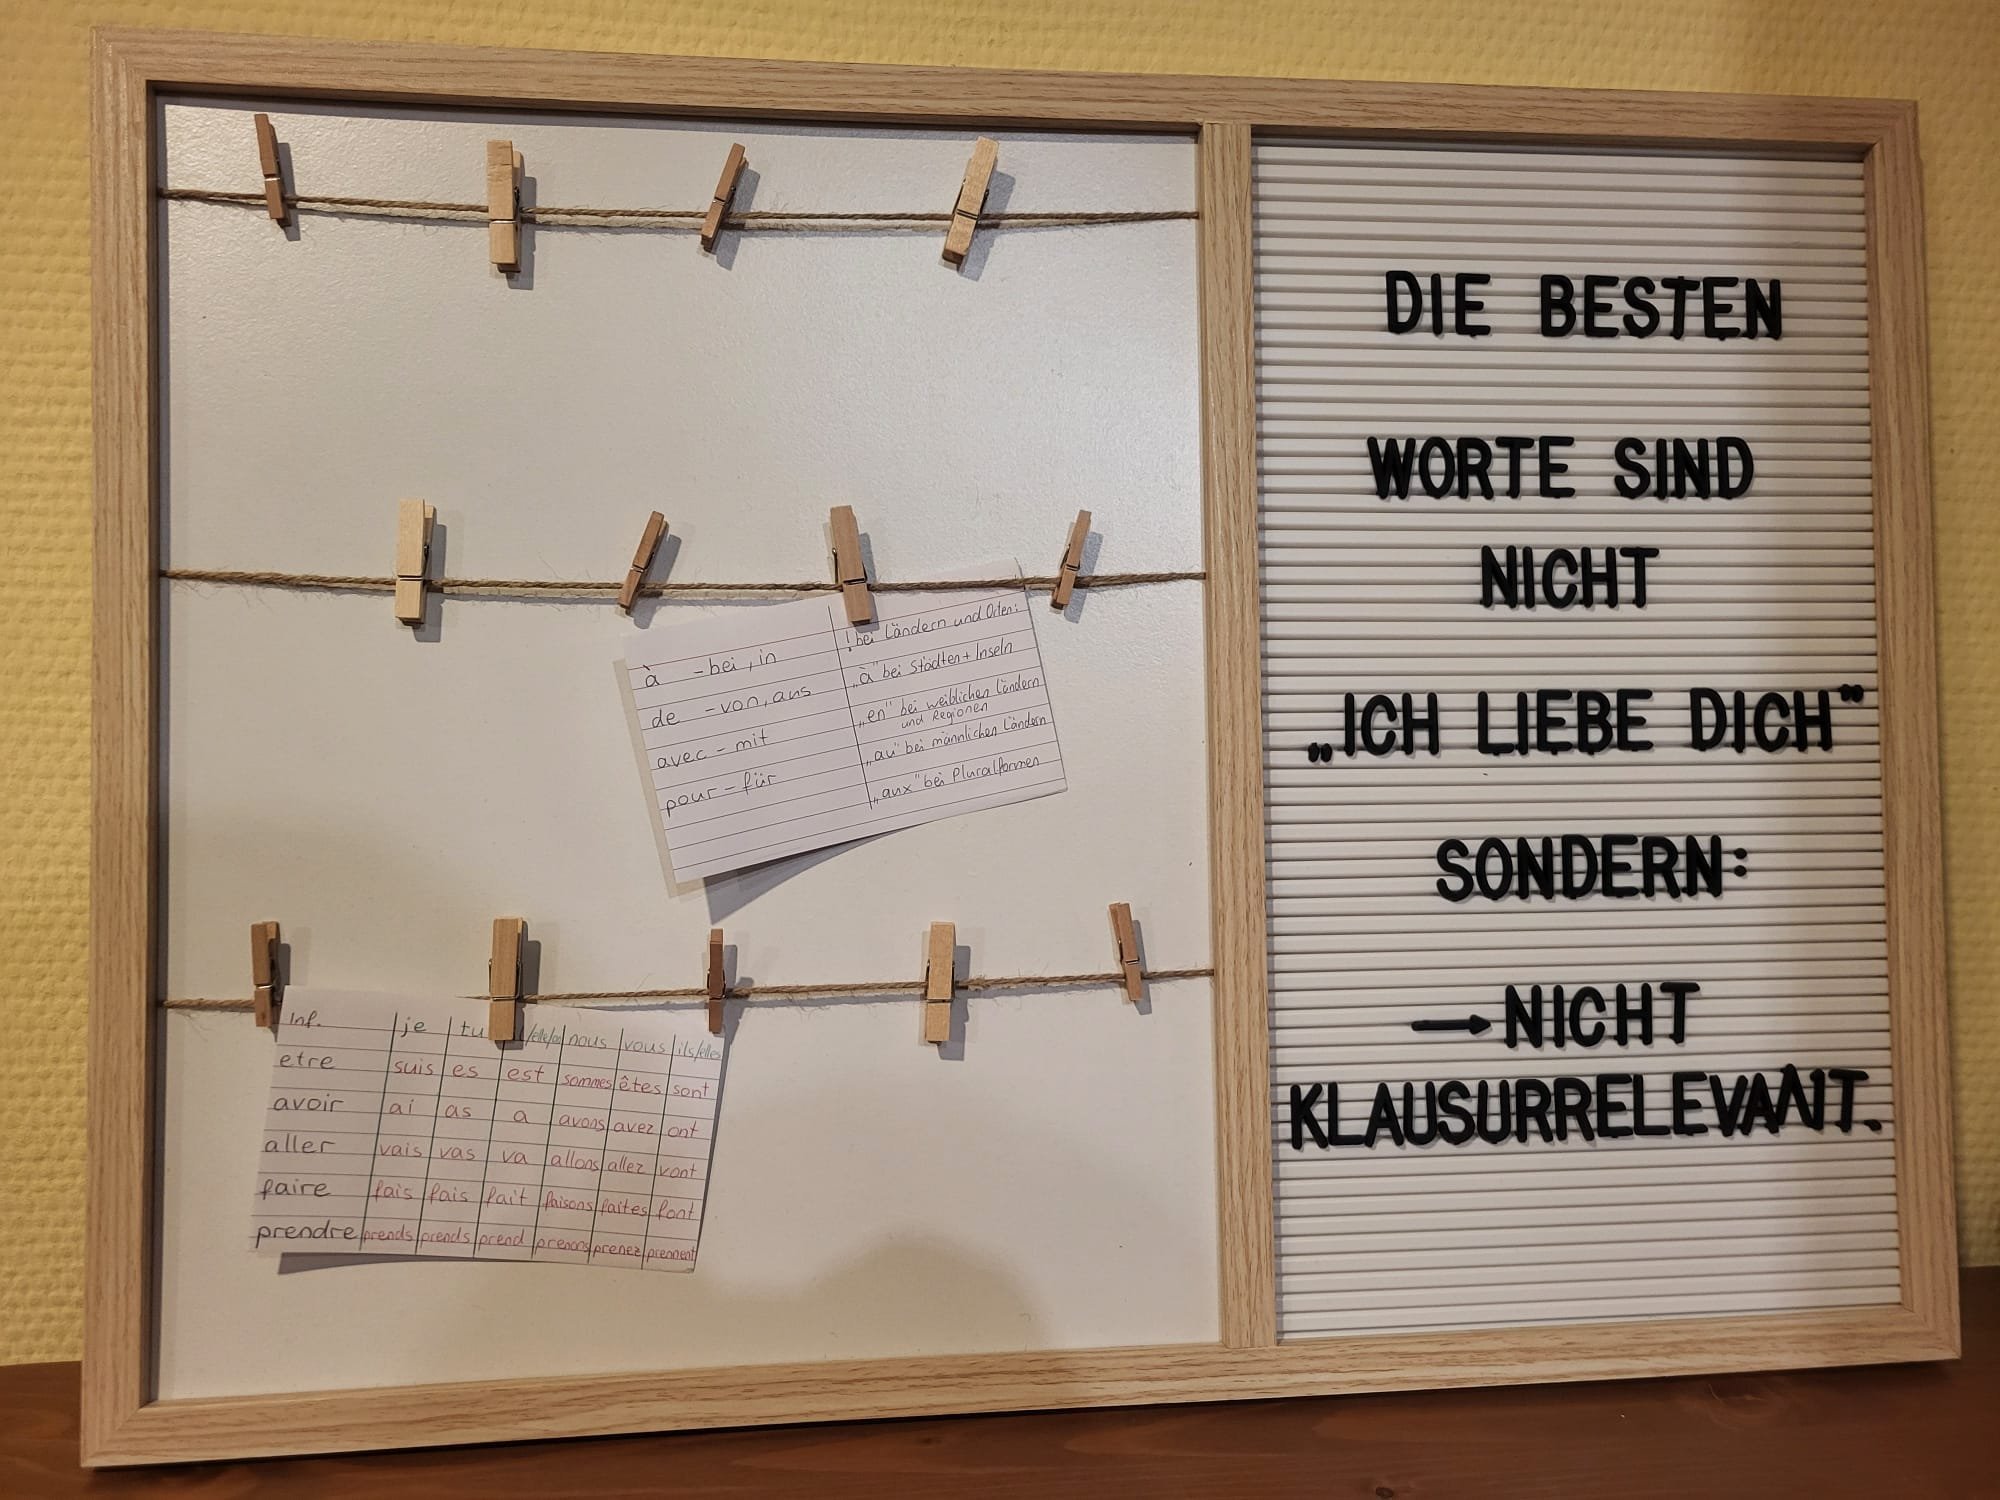 à - bei, in
de - von, aus
avec - mit
pour - für
! bei Ländern und Orten:
„à“ bei Städten + Inseln
„en“ bei weiblichen Ländern
und Regionen
„au“ bei männlichen Ländern
„aux“ bei Pluralformen
Inf. je tu /elle/on nous vous ils/elles
etre suis es est sommes êtes sont
avoir ai as a avons avez ont
aller vais vas va allons allez vont
faire fais fais fait faisons faites font
prendre prends prends prend prenons prenez prennent
DIE BESTEN
WORTE SIND
NICHT
„ICH LIEBE DICH“
SONDERN:
→NICHT
KLAUSURRELEVANT.